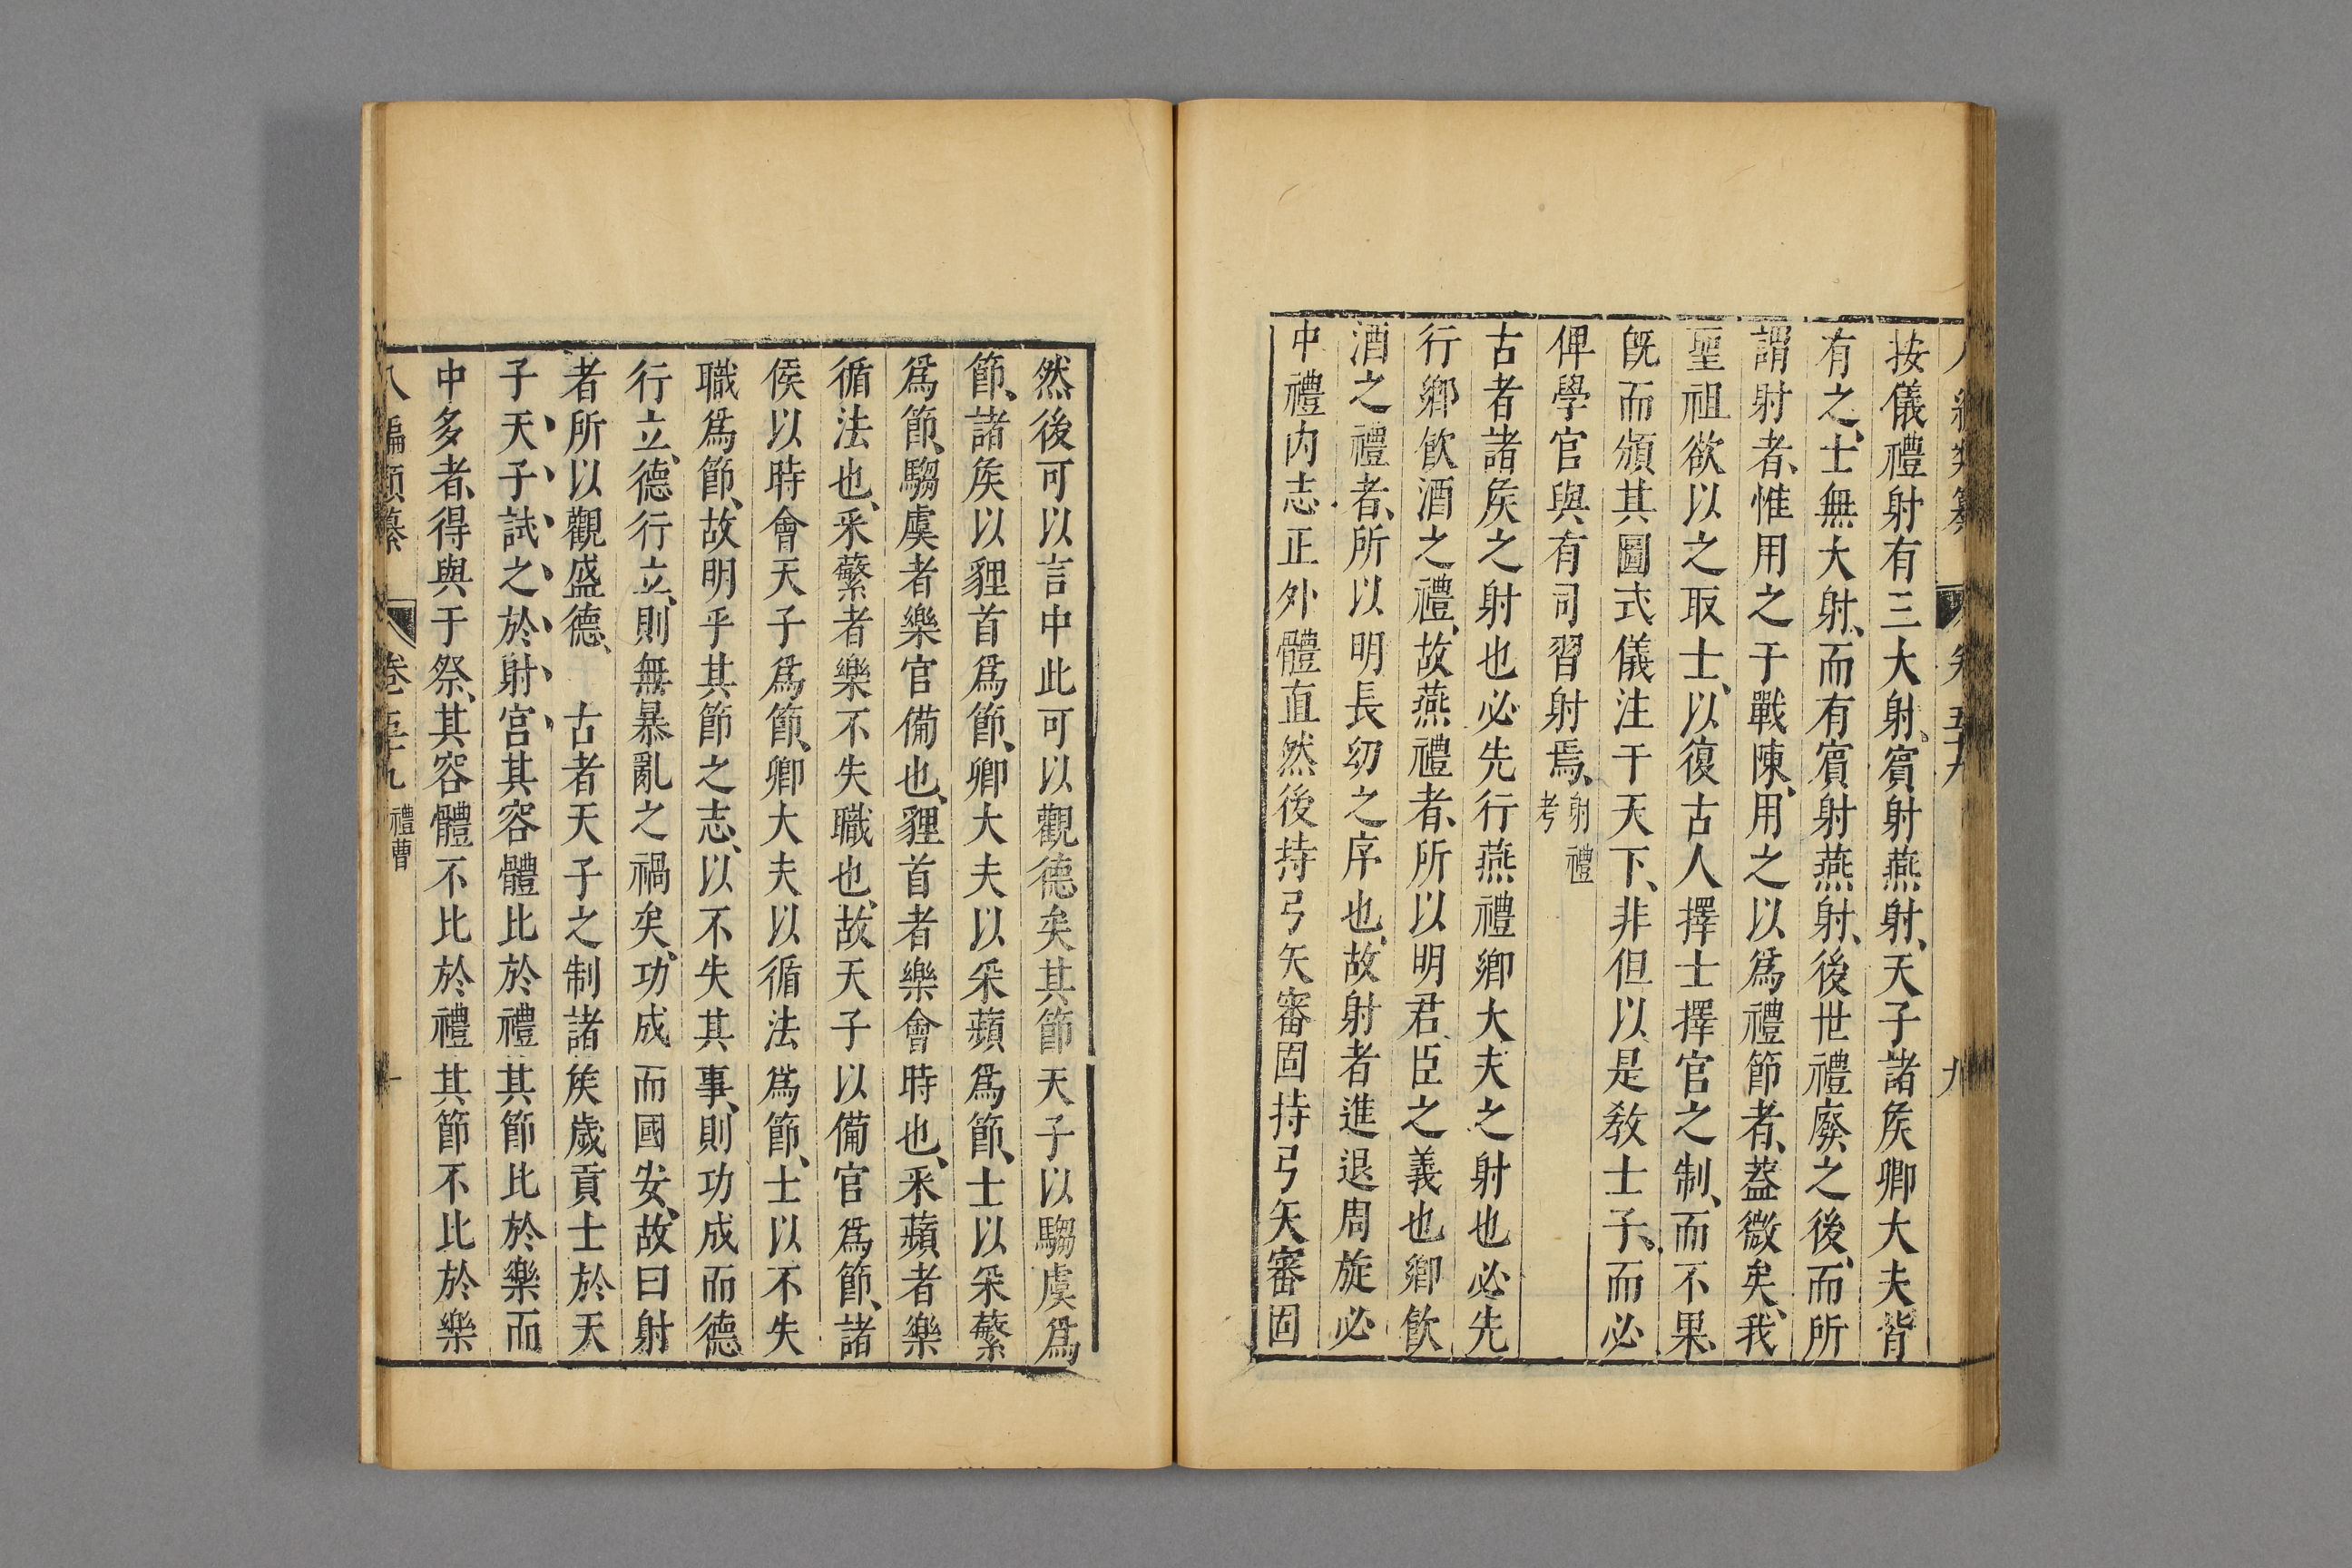 按儀禮射有三大射、賓射燕射、天子諸矦卿大夫皆
有之、士無大射、而有賓射燕射、後世禮廢之後、而所
謂射者、惟用之于戰陳、用之以爲禮節者、蓋微矣、我
聖祖欲以之取士、以復古人擇士擇官之制、而不果、
旣而頒其圖式儀注于天下、非但以是敎士子、而必
俾學官與有司習射焉、射禮考
古者諸矦之射也必先行燕禮卿大夫之射也必先
行鄉飮酒之禮、故燕禮者、所以明君臣之義也卿飮
酒之禮者、所以明長幼之序也、故射者進退周旋必
中禮內志正外體直然後持弓矢審固持弓矢審固
然後可以言中此可以觀德矣其節天子以騶虞爲
節、諸矦以貍首爲節、卿大夫以采蘋爲節、士以采蘩
爲節、騶虞者樂官備也、貍首者樂會時也、采蘋者樂
循法也、采蘩者樂不失職也、故天子以備官爲節、諸
侯以時會天子爲節、卿大夫以循法爲節、士以不失
職爲節、故明乎其節之志、以不失其事、則功成而德
行立、德行立、則無暴亂之禍矣、功成而國安、故曰射
者所以觀盛德、　古者天子之制諸矦歲貢士於天
子、天子試之於射宮其容體比於禮其節比於樂而
中多者、得與于祭、其容體不比於禮其節不比於樂
八編類纂　卷五十九　禮曹